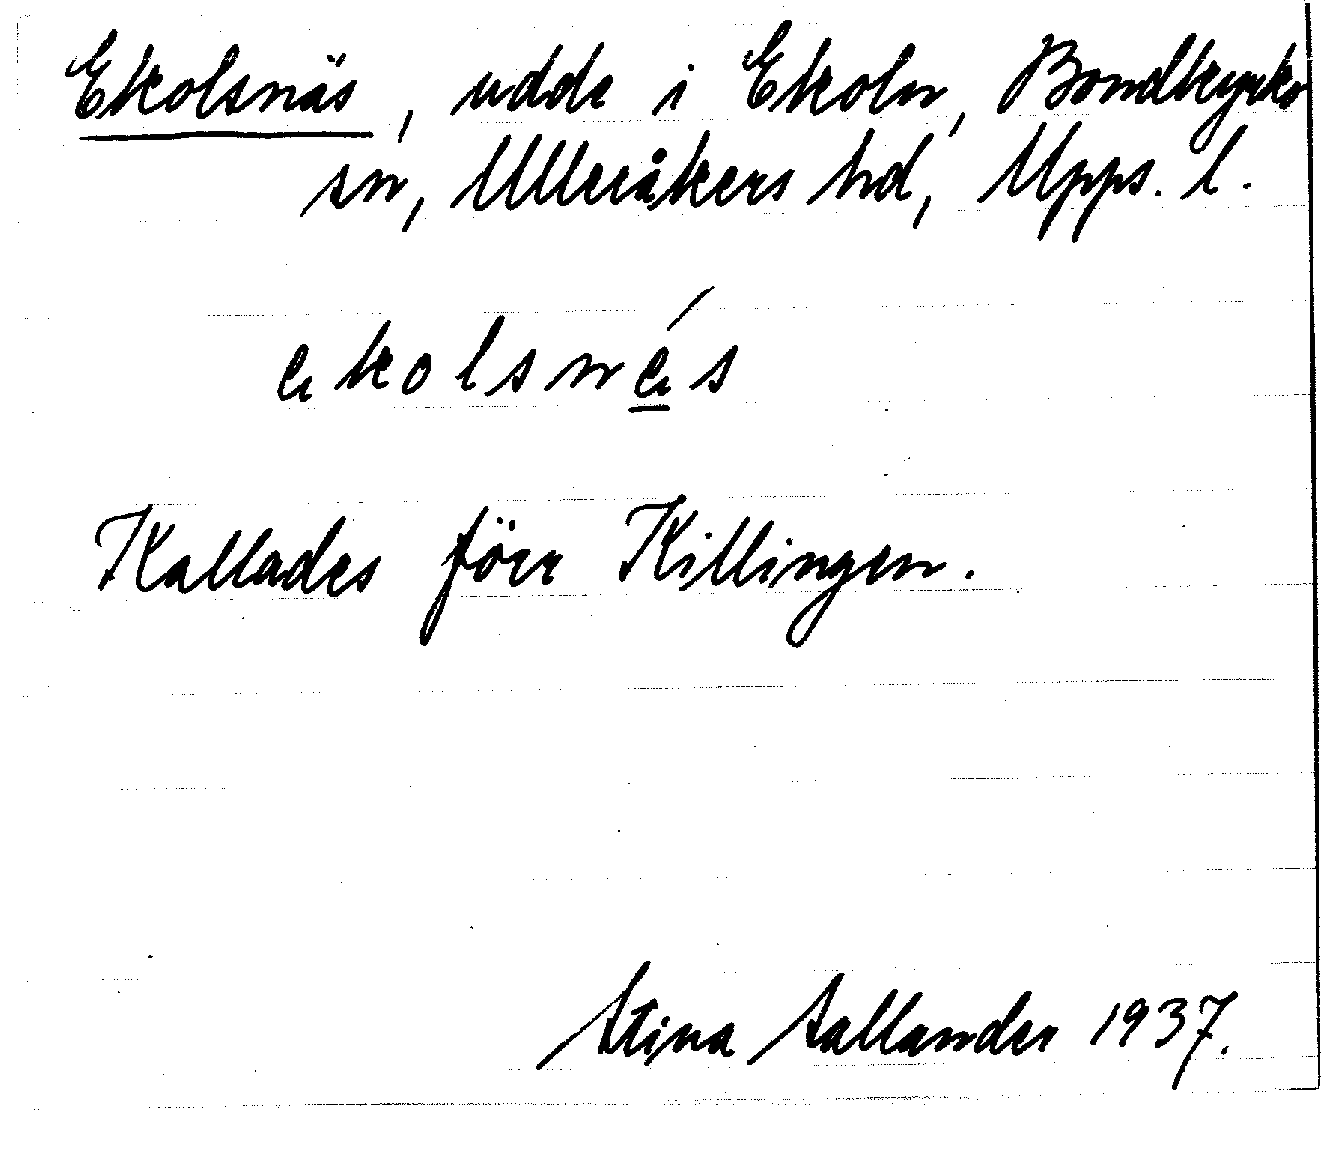 Ekolsnäs, udde i Ekoln, Bondkyrko
sn, Ulleråkers hd, Upps. l.
ekolsnés
Kallades förr Killingen.
Stina Sallander 1937.